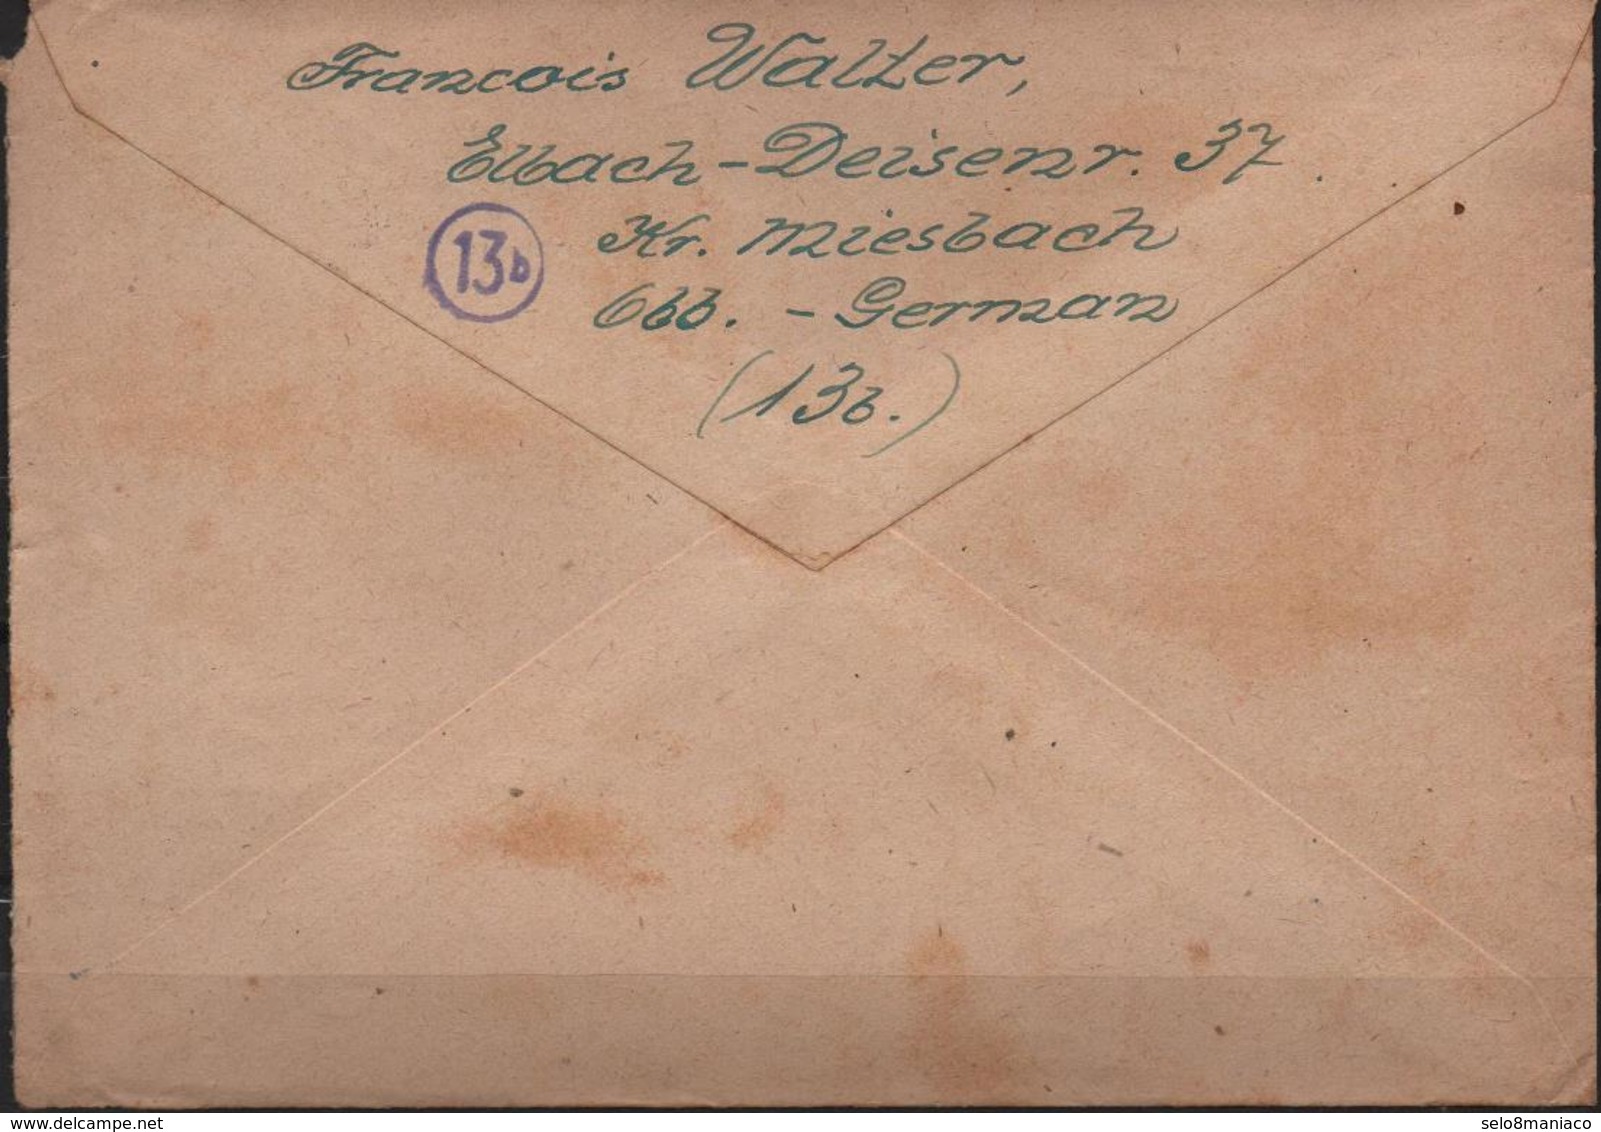 Francois Walter,
Elbach-Deisenr. 37.
13b
Kr. Miesbach
Obb. - German
(13b.)
delcampe.net
selo8maniaco